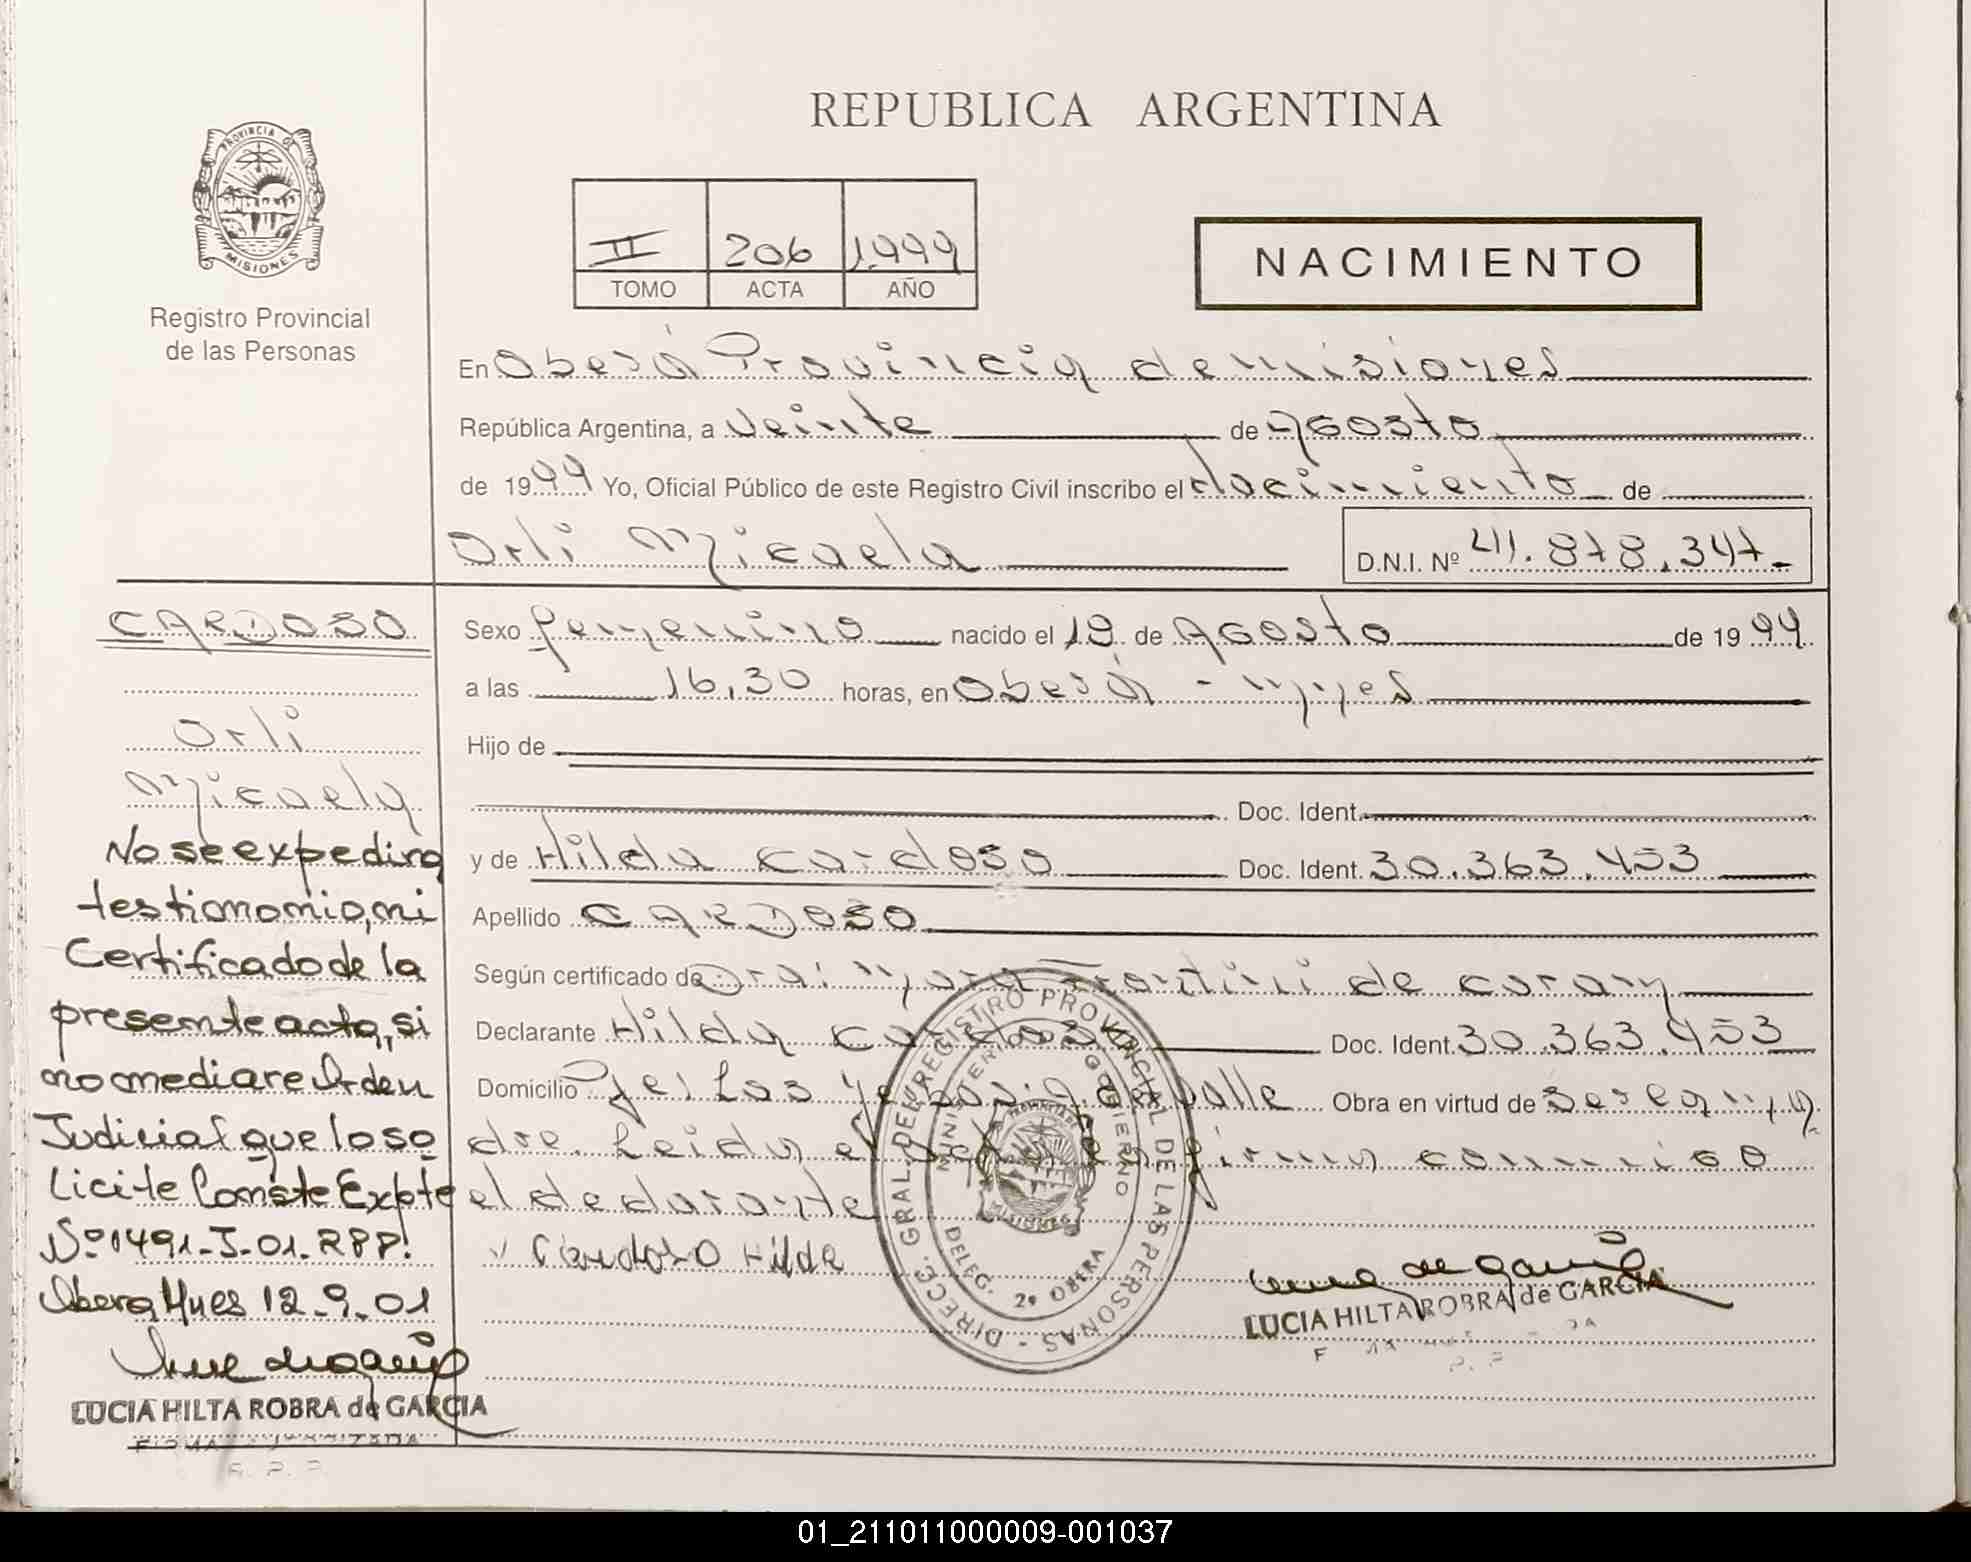 REPUBLICA ARGENTINA
PROVINCIA DE
MISIONES
Registro Provincial
de las Personas
II 206 1.999
TOMO ACTA AÑO
NACIMIENTO
En Oberá Provincia de misiones
República Argentina, a veinte de Agosto
de 1999 Yo, Oficial Público de este Registro Civil inscribo el Nacimiento de
Orli Micaela D.N.I. Nº 41.878.347.-
CARDOSO
Orli
Micaela
No se expedira
testimonio, ni
Certificado de la
presente acta, si
no mediare Orden
Judicial que lo so
licite Conste Expte
Nº 1491-J-01. RPP.
Obera Mnes 12-9-01
LUCIA HILTA ROBRA de GARCIA
Sexo femenino nacido el 19 de Agosto de 1999
a las 16,30 horas, en Oberá - mnes
Hijo de
Doc. Ident.
y de Hilda Cardoso Doc. Ident. 30.363.453
Apellido CARDOSO
Según certificado de Dra: de
Declarante Hilda Cardoso Doc. Ident. 30.363.453
Domicilio Pje: Las Obra en virtud de Ser la ma
dre. Leida el Acta la firma conmigo
el declarante
Cardozo Hilda
DIRECC. GRAL. DEL REGISTRO PROVINCIAL DE LAS PERSONAS -
MINISTERIO DE GOBIERNO
DELEG. 2ª OBERA
MISIONES
LUCIA HILTA ROBRA de GARCIA
01_211011000009-001037